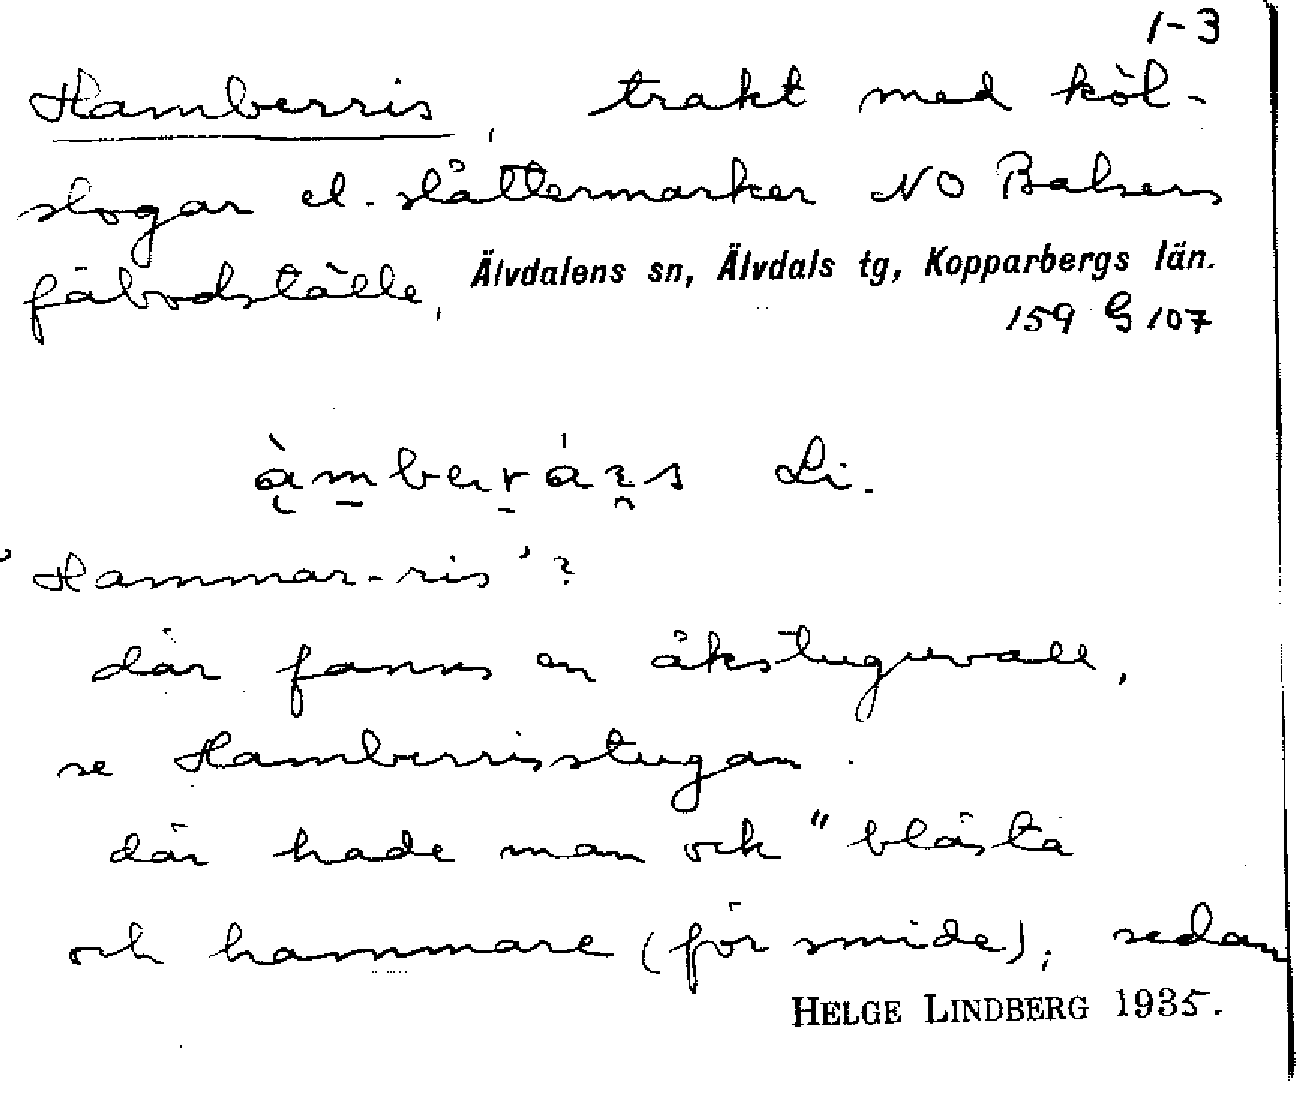 1-3
Hamberris, trakt med köl-
slogar el. slåttermarker NO Balsers
fäbodställe, Älvdalens sn, Älvdals tg, Kopparbergs län.
159 G 107
Li.
'Hammar-ris'?
där fanns en åkstuguvall,
se Hamberrisstugan.
där hade man ock "blästa
och hammare (för smide), sedan
HELGE LINDBERG 1935.